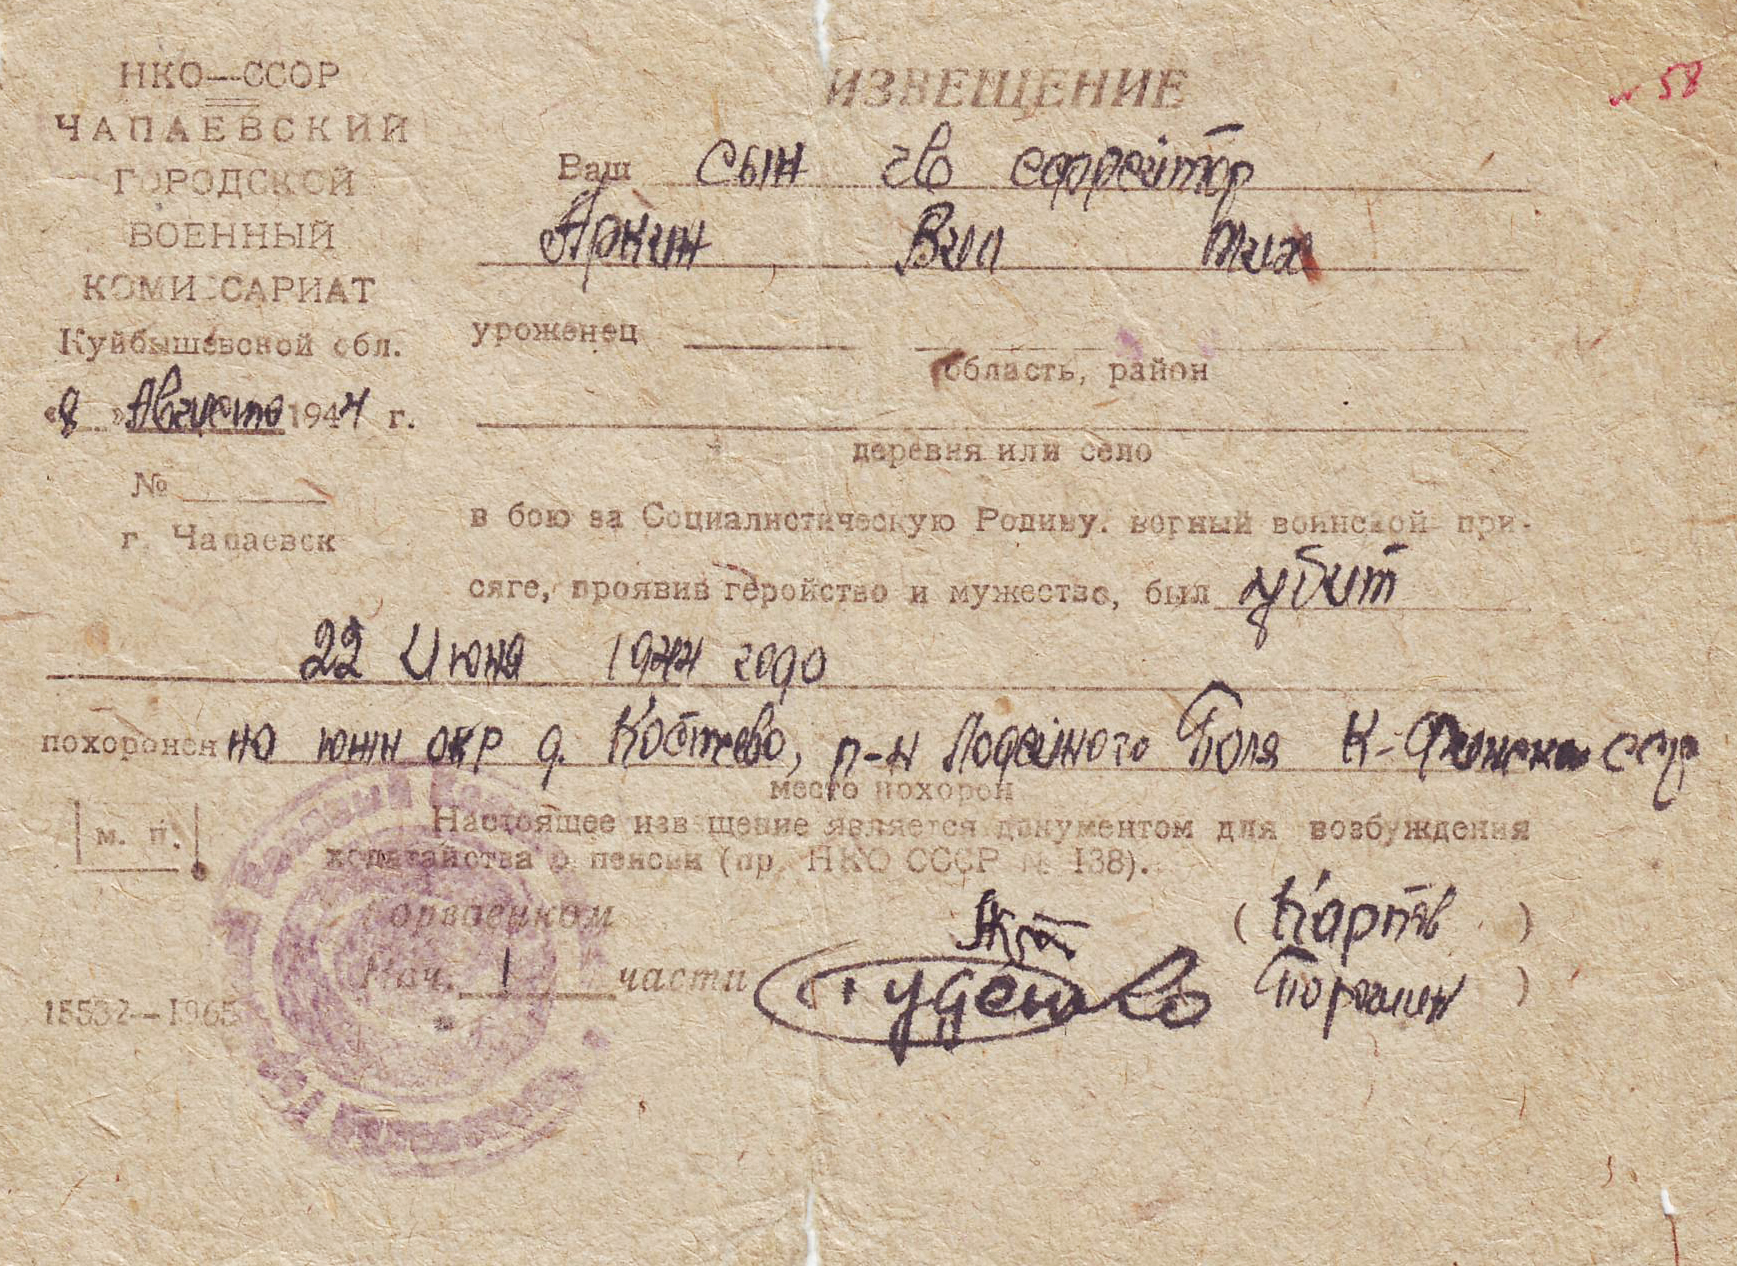 НКО—ССОР
ЧАПАЕВСКИЙ
ГОРОДСКОЙ
ВОЕННЫЙ
КОМИССАРИАТ
Куйбышевской обл.
«8» Августа 1944 г.
№
г. Чапаевск
ИЗВЕЩЕНИЕ
58
Ваш сын гв ефрейтор
Аркин Вил Мих
уроженец
область, район
деревня или село
в бою за Социалистическую Родину. верный воинской при-
сяге, проявив геройство и мужество, был убит
22 Июня 1944 года
похоронен на южн окр д. р-н Лодейного Поля К-Финская ССР
место похорон
м. п.
Настоящее извещение является документом для возбуждения
ходатайства о пенсии (пр. НКО СССР № 138).
Горвоенком (Карпов)
Нач. 1 части
15532—1965